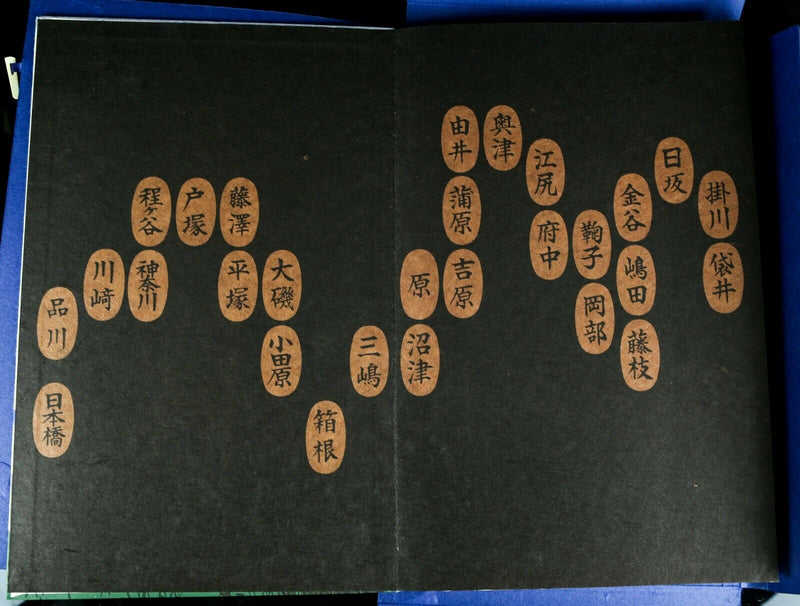 日本橋
品川
川崎
神奈川
程ヶ谷
戸塚
藤澤
平塚
大磯
小田原
箱根
三嶋
沼津
原
吉原
蒲原
由井
奥津
江尻
府中
鞠子
岡部
藤枝
嶋田
金谷
日坂
掛川
袋井